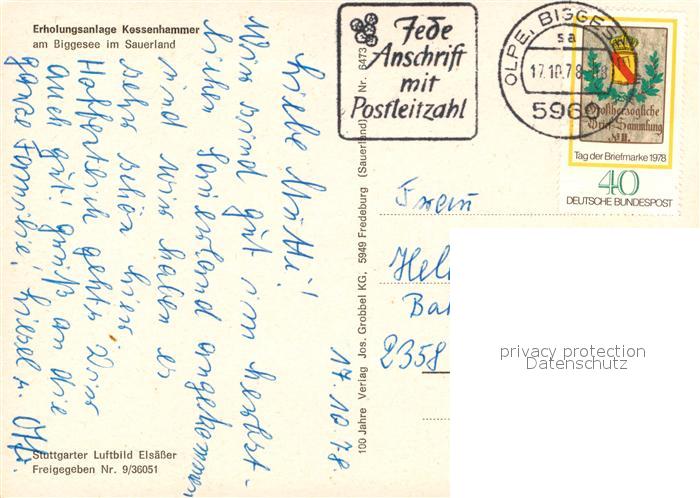 Erholungsanlage Kossenhammer
am Biggesee im Sauerland
Jede
Anschrift
mit
Postleitzahl
OLPE, BIGGESEE
sa
17.10.78-18
5960
Großherzogliche
Brief-Sammlung
Tag der Briefmarke 1978
40
DEUTSCHE BUNDESPOST
17.10.78.
Liebe Mutti!
Wir sind gut im herbst-
lichen Sauerland angekommen
und wir haben es
sehr schön hier
Hoffentlich geht's Dir
auch gut! Grüß an die
ganze Familie! Liesel u.
Frau
Hel
Ba
2358
100 Jahre Verlag Jos. Grobbel KG, 5949 Fredeburg (Sauerland) Nr. 6473
Stuttgarter Luftbild Elsäßer
Freigegeben Nr. 9/36051
privacy protection
Datenschutz